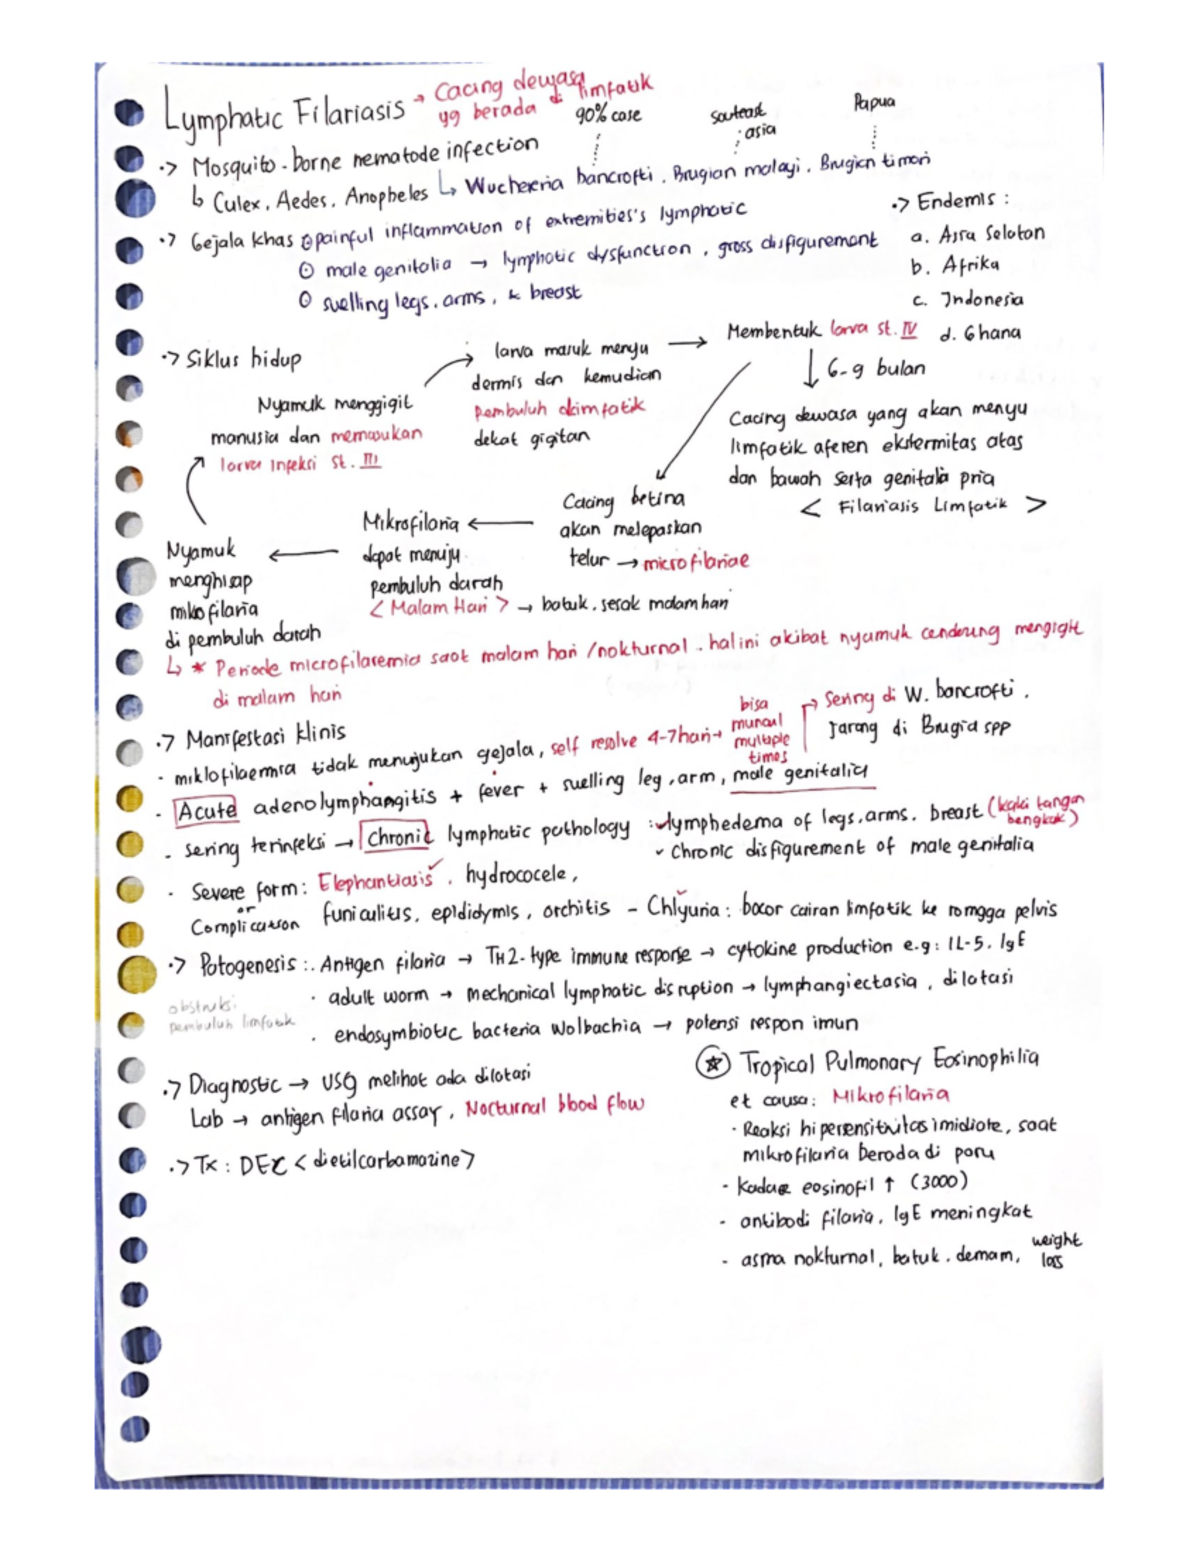 Lymphatic Filariasis → Cacing dewasa
yg berada di limfatik
90% case
Souteast
asia
Papua
·> Mosquito-borne nematode infection
↳ Culex, Aedes, Anopheles ↳ Wuchereria bancrofti, Brugian malayi, Brugian timori
·> Gejala khas ⊙ painful inflammation of extremities's lymphatic
⊙ male genitalia → lymphatic dysfunction, gross disfigurement
⊙ suelling legs, arms, & breast
·> Endemis :
a. Asia Selatan
b. Afrika
c. Indonesia
d. Ghana
·> Siklus hidup
Nyamuk menggigit
manusia dan memasukan
larva infeksi st. III
larva masuk menyu
dermis dan kemudian
pembuluh dlimfatik
dekat gigitan
Membentuk larva st. IV
6-9 bulan
Cacing dewasa yang akan menyu
limfatik aferen ekstermitas atas
dan bawah serta genitala pria
< Filariasis Limfatik >
Cacing betina
akan melepaskan
telur → microfibriae
Mikrofilaria
dapat menuju
pembuluh darah
< Malam Hari > → batuk, sesak malam hari
Nyamuk
menghisap
mikofilaria
di pembuluh darah
↳ * Periode microfilaremia saat malam hari /nokturnal. hal ini akibat nyamuk cenderung mengigit
di malam hari
·> Manifestasi klinis
- mikfofilaemia tidak menunjukan gejala, self resolve 4-7 hari →
bisa
muncul
multiple
times
→ Sering di W. bancrofti.
Jarang di Brugia spp
- Acute adenolymphangitis + fever + suelling leg, arm, male genitalia
- sering terinfeksi → Chronic lymphatic pathology : ✓ lymphedema of legs, arms, breast (kaki tangan
bengkak)
✓ Chronic disfigurement of male genitalia
- Severe form: Elephantiasis ✓, hydrococele,
or
Complication funiculitus, epididymis, orchitis - Chlyuria: bocor cairan limfatik ke romgga pelvis
·> Patogenesis :. Antigen filaria → TH2-type immune response → cytokine production e.g: IL-5, IgE
· adult worm → mechanical lymphatic disruption → lymphangiectasia, dilatasi
obstruksi
pembuluh limfatik
· endosymbiotic bacteria Wolbachia → potensi respon imun
·> Diagnostic → USG melihat ada dilatasi
Lab → antigen filaria assay, Nocturnal blood flow
·> Tx : DEC < dietilcarbamazine>
☆ Tropical Pulmonary Eosinophilia
et causa: Mikrofilaria
· Reaksi hipersensitivitas imidiate, saat
mikrofilaria berada di paru
- Kadar eosinofil ↑ (3000)
- antibodi filaria, IgE meningkat
- asma nokturnal, batuk, demam, weight
loss